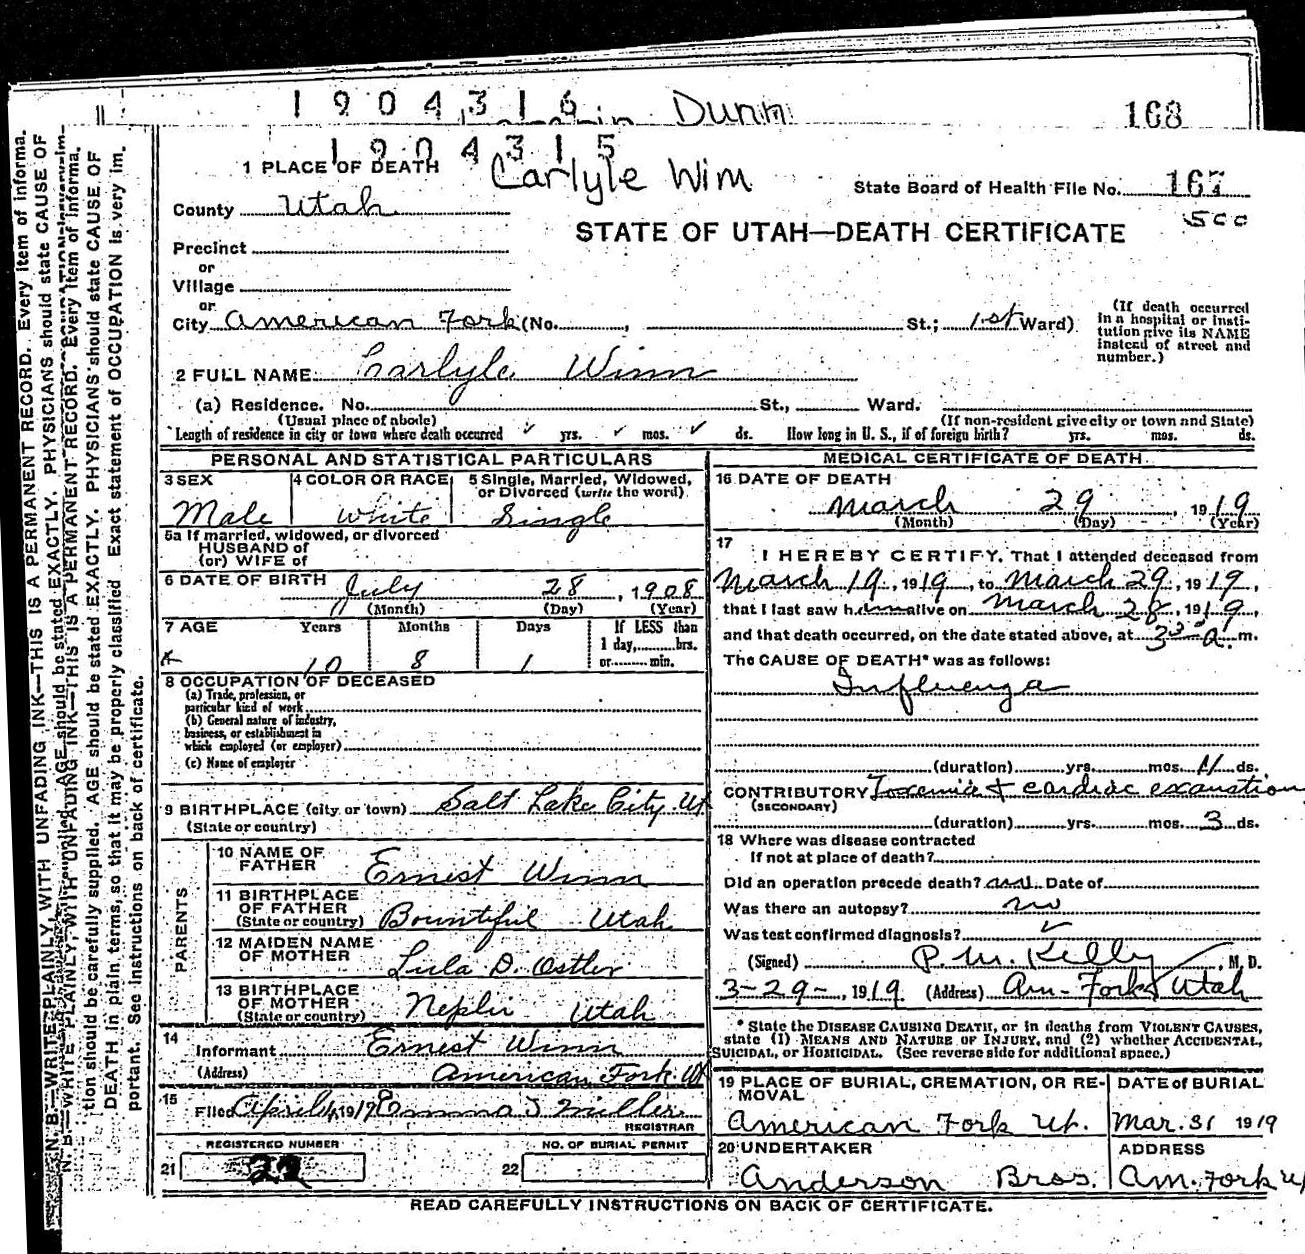 1904316 Dunn 168
1904315
1 PLACE OF DEATH Carlyle Wim State Board of Health File No. 167
County Utah 5cc
STATE OF UTAH—DEATH CERTIFICATE
Precinct
or
Village
or
City American Fork (No. , St.; 1st Ward)
(If death occurred in a hospital or insti-
tution give its NAME
instead of street and
number.)
2 FULL NAME Carlyle Winn
(a) Residence. No. St., Ward.
(Usual place of abode) (If non-resident give city or town and State)
Length of residence in city or town where death occurred yrs. mos. ds. How long in U. S., if of foreign birth? yrs. mos. ds.
PERSONAL AND STATISTICAL PARTICULARS
3 SEX 4 COLOR OR RACE 5 Single, Married, Widowed,
or Divorced (write the word)
Male White Single
5a If married, widowed, or divorced
HUSBAND of
(or) WIFE of
6 DATE OF BIRTH July 28, 1908
(Month) (Day) (Year)
7 AGE Years Months Days If LESS than
1 day, hrs.
or min.
10 8 1
8 OCCUPATION OF DECEASED
(a) Trade, profession, or
particular kind of work
(b) General nature of industry,
business, or establishment in
which employed (or employer)
(c) Name of employer
9 BIRTHPLACE (city or town) Salt Lake City, Ut
(State or country)
PARENTS
10 NAME OF
FATHER Ernest Winn
11 BIRTHPLACE
OF FATHER
(State or country) Bountiful Utah
12 MAIDEN NAME
OF MOTHER Lula D. Ostler
13 BIRTHPLACE
OF MOTHER
(State or country) Nephi Utah
14
Informant Ernest Winn
(Address) American Fork. Ut
15
Filed April 4, 1919 Emma S Miller
REGISTRAR
REGISTERED NUMBER NO. OF BURIAL PERMIT
21 22 22
MEDICAL CERTIFICATE OF DEATH
16 DATE OF DEATH
March 29, 1919
(Month) (Day) (Year)
17
I HEREBY CERTIFY, That I attended deceased from
March 19, 1919, to March 29, 1919,
that I last saw him alive on March 28, 1919,
and that death occurred, on the date stated above, at 3 a. m.
The CAUSE OF DEATH* was as follows:
Influenza
(duration) yrs. mos. 11 ds.
CONTRIBUTORY Toxemia & cardiac exaustion
(SECONDARY)
(duration) yrs. mos. 3 ds.
18 Where was disease contracted
If not at place of death?
Did an operation precede death? Date of
Was there an autopsy? no
Was test confirmed diagnosis?
(Signed) P. M. Kelly, M. D.
3-29-, 1919 (Address) Am-Fork Utah
* State the DISEASE CAUSING DEATH, or in deaths from VIOLENT CAUSES,
state (1) MEANS AND NATURE OF INJURY, and (2) whether ACCIDENTAL,
SUICIDAL, or HOMICIDAL. (See reverse side for additional space.)
19 PLACE OF BURIAL, CREMATION, OR RE-
MOVAL DATE of BURIAL
American Fork Ut. Mar. 31 1919
20 UNDERTAKER ADDRESS
Anderson Bros. Am. Fork
READ CAREFULLY INSTRUCTIONS ON BACK OF CERTIFICATE.
N. B.—WRITE PLAINLY, WITH UNFADING INK—THIS IS A PERMANENT RECORD. Every item of informa-
tion should be carefully supplied. AGE should be stated EXACTLY. PHYSICIANS should state CAUSE OF
DEATH in plain terms, so that it may be properly classified. Exact statement of OCCUPATION is very im-
portant. See instructions on back of certificate.